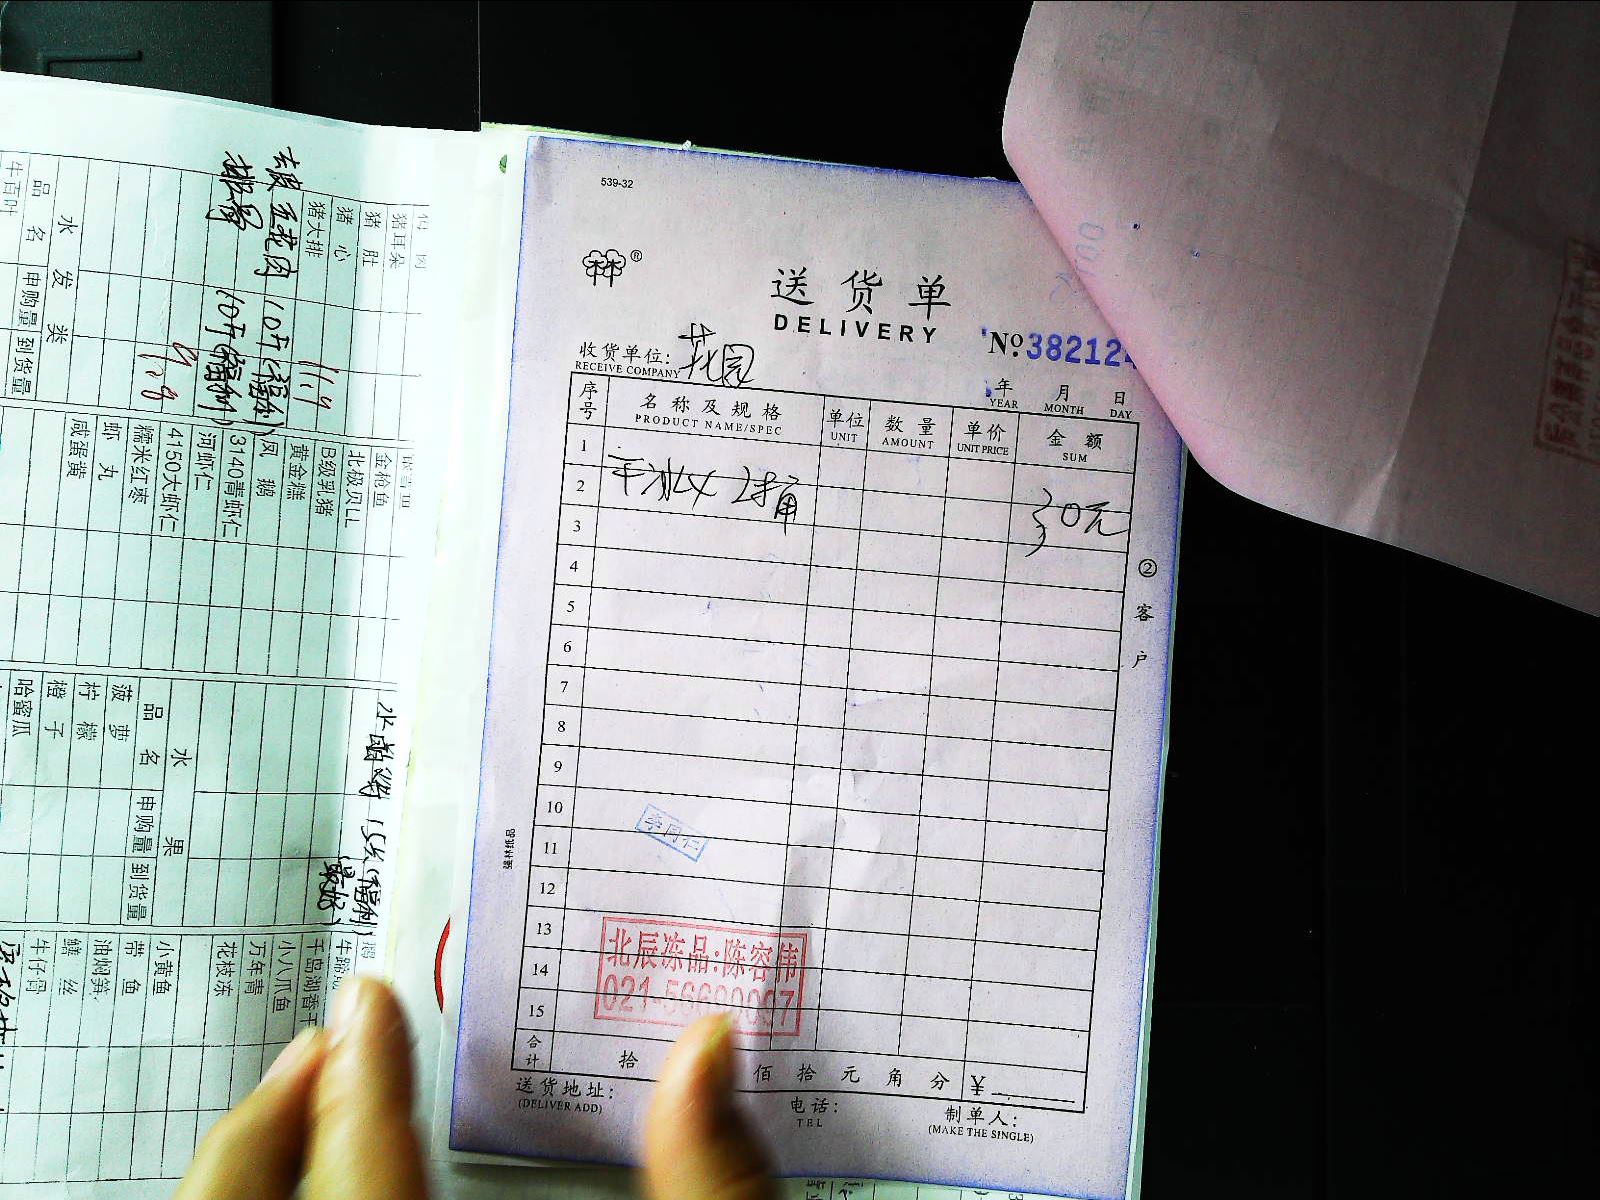 539-32
林林®
送货单
DELIVERY
No. 382124
收货单位: 花园
RECEIVE COMPANY
年 月 日
YEAR MONTH DAY
序号 名称及规格 单位 数量 单价 金额
PRODUCT NAME/SPEC UNIT AMOUNT UNIT PRICE SUM
1
2 干冰 30元
3
4
5
6
7
8
9
10
11
12
13
14
15
李同仁
北辰冻品:陈容伟
021-
合计 拾 佰 拾 元 角 分 ¥
送货地址: 电话: 制单人:
(DELIVER ADD) TEL (MAKE THE SINGLE)
②客户
强林纸品
猪耳朵
猪肚
猪心
猪大排
去皮五花肉 10斤(福利)
11.9
10斤(福利)
9.8
水发类
品名 申购量 到货量
牛百叶
金枪鱼
北极贝LL
B级乳猪
黄金糕
凤鹅
3140青虾仁
河虾仁
4150大虾仁
糯米红枣
虾丸
咸蛋黄
水果
品名 申购量 到货量
菠萝
柠檬
橙子
哈蜜瓜
千岛湖香干
小八爪鱼
万年青
花枝冻
小黄鱼
带鱼
油焖笋
鳝丝
牛仔骨